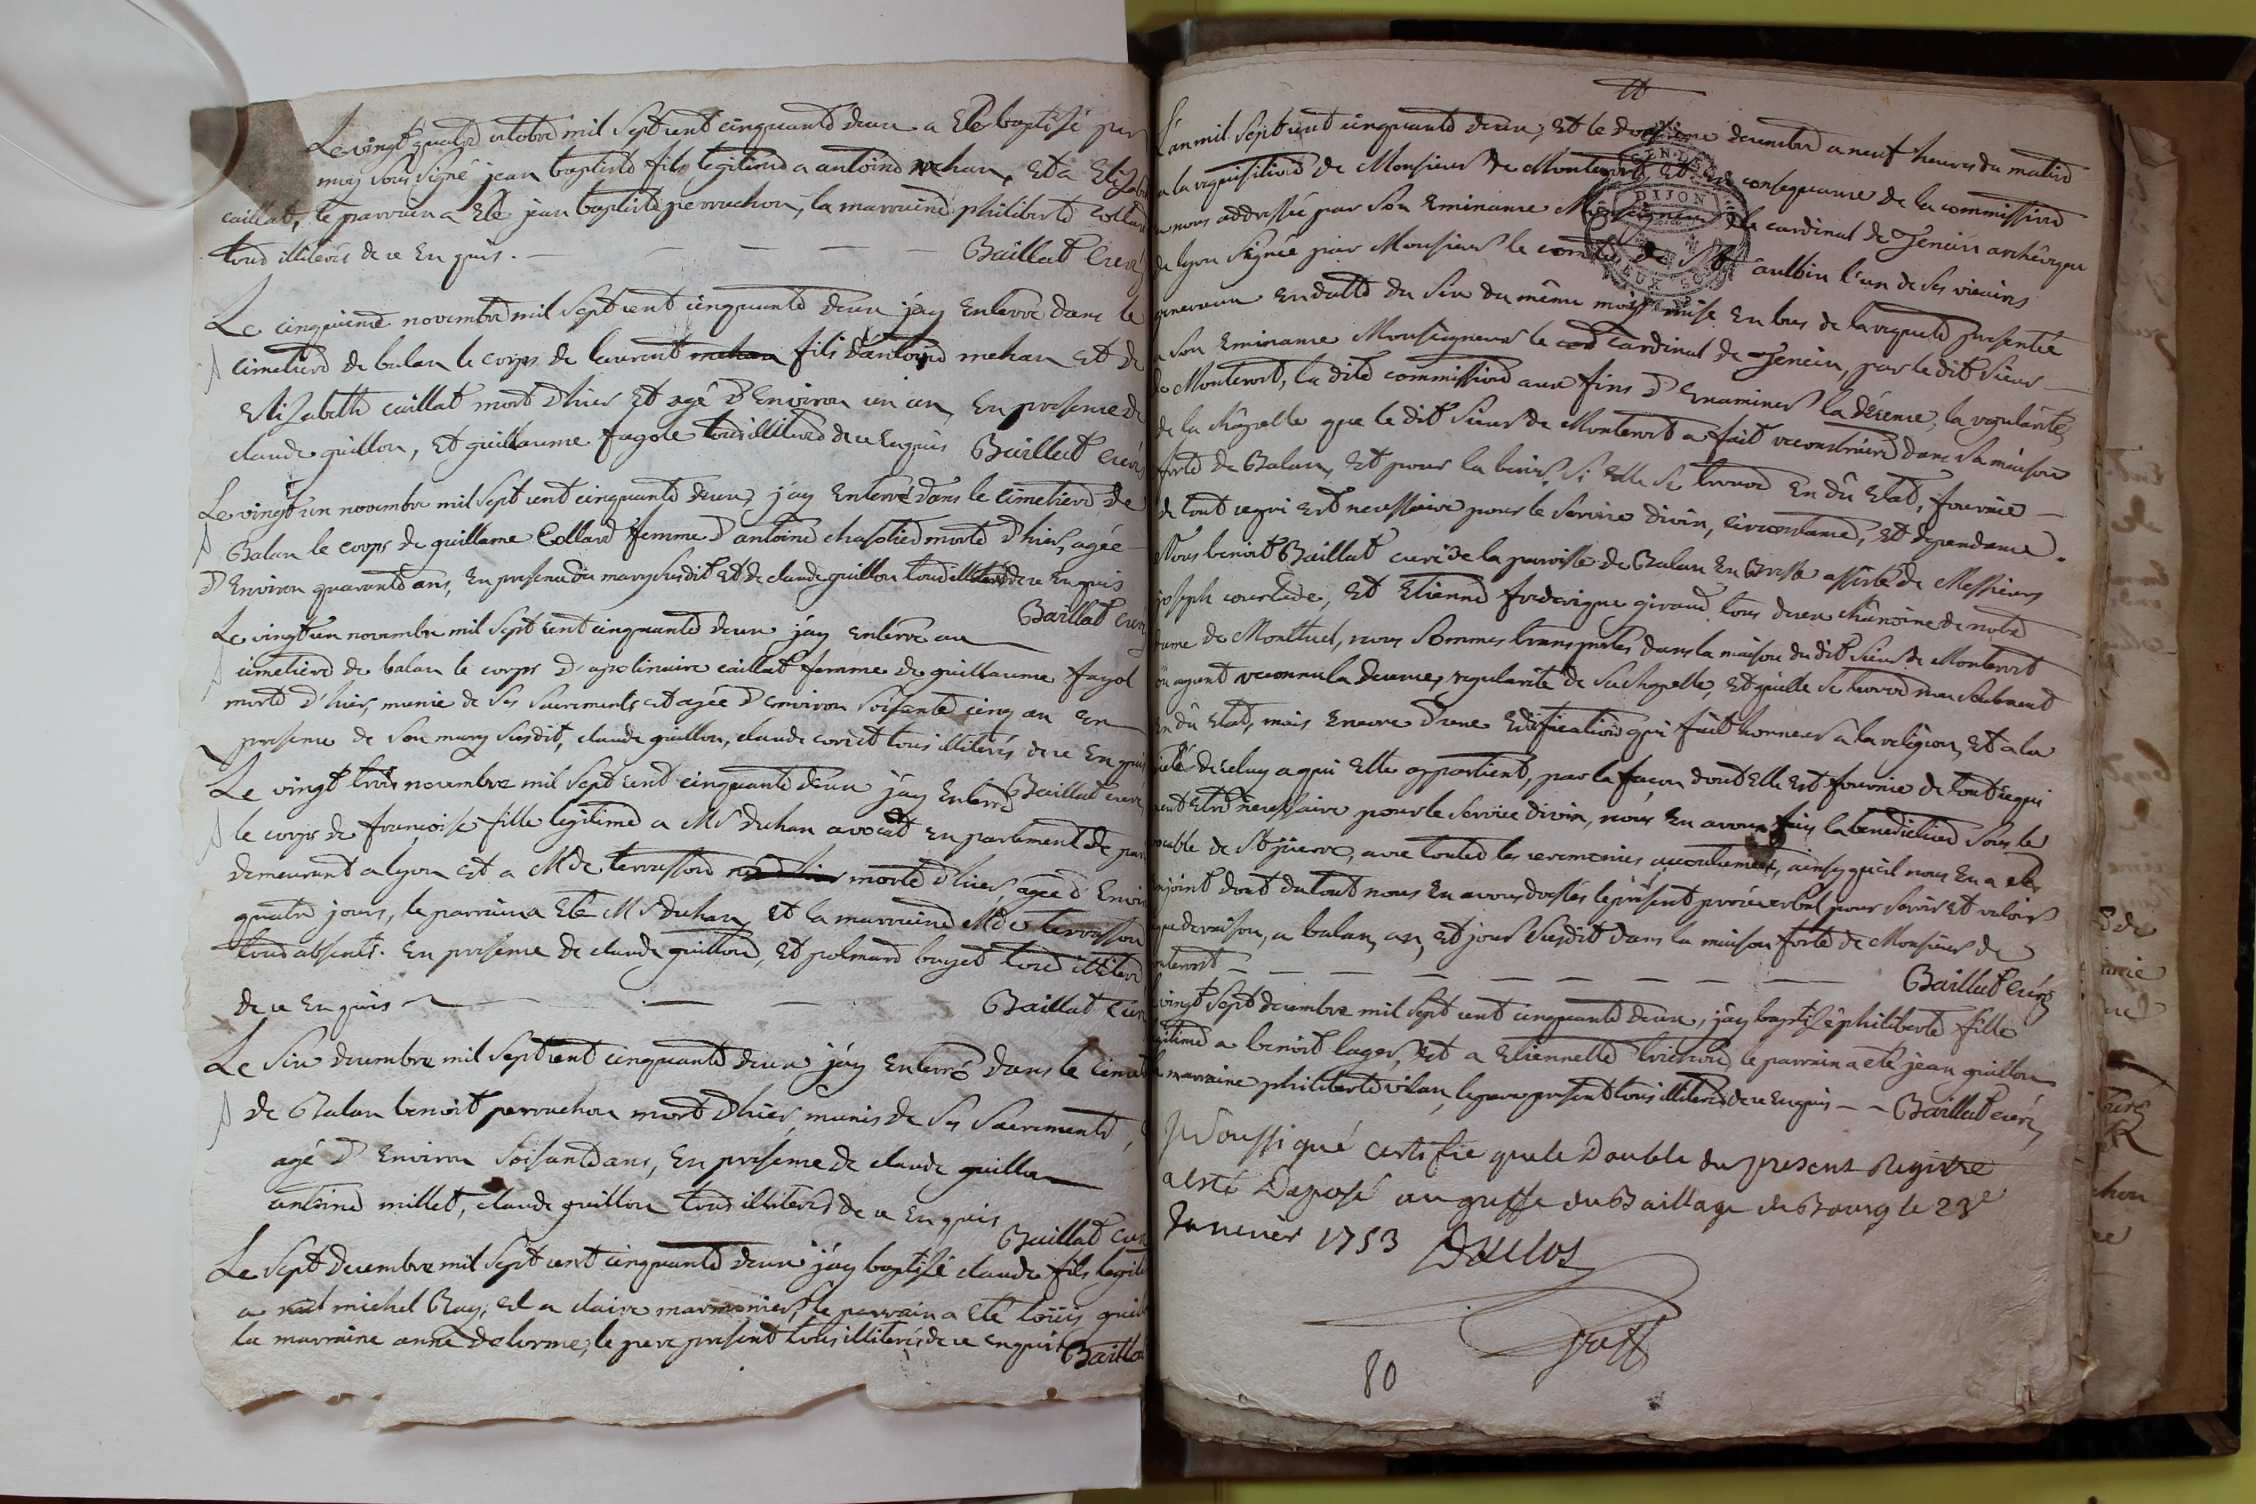 Le vingt quatre octobre mil sept cent cinquante deux a ete baptisé par
moy sous signé jean baptiste fils legitime a antoine mehan, et a Elizab
caillat, le parrain a ete jean baptiste perruchon, la marraine philiberte collard
tous illiterés de ce enquis. Baillat curé
Le cinquieme novembre mil sept cent cinquante deux j'ay enterré dans le
cimetiere de balan le corps de laurent fils d'antoine mehan et de
Elizabeth caillat mort d'hier et agé d'Environ un an, En presence de
claude guillon, et guillaume fagole tous illiteres de ce enquis Baillat curé
Le vingt un novembre mil sept cent cinquante deux, j'ay enterré dans le cimetiere de
Balan le corps de guillame Collard femme d'antoine morte d'hier, agée
d'Environ quarante ans, En presence du mary susdit et de claude guillon tous illiteres de ce enquis
Baillat curé
Le vingt un novembre mil sept cent cinquante deux j'ay enterré au
cimetiere de balan le corps d'apolinaire caillat femme de guillaume fagol
morte d'hier, munie de ses sacrements et agée d'environ soisante cinq an en
presence de son mary susdit, claude guillon, claude tous illiterés de ce Enquis
Baillat curé
Le vingt trois novembre mil sept cent cinquante deux j'ay enterré
le corps de françoise fille legitime a Mr duhan avocat en parlement de par
demeurant a lyon et a Mde terrasson morte d'hier, agée d'Envir
quatre jours, le parrain a été Mr duhan, et la marraine Mde terrasson
tous absents. En presence de claude guillon, et buget tous illiteré
de ce enquis Baillat curé
Le six decembre mil sept cent cinquante deux j'ay enterré dans le cimet
de Balan benoit perruchon mort d'hier, munis de ses sacrements,
agé d'Environ soisante ans, En presence de claude guillon
antoine millet, claude guillon tous illiteres de ce enquis
Baillat cur
Le sept decembre mil sept cent cinquante deux j'ay baptisé claude fils legit
a michel Ray, et a claire marmonier, le parrain a eté loüis guil
la marraine anne delorme, le pere present tous illiterés de ce enquis Baillat
L'an mil sept cent cinquante deux, et le decembre a neuf heures du matin
a la requisition de Monsieur de Montevert, et en consequence de la commission
a nous addressée par son Eminance Monseigneur le cardinal de Tencin archêvêque
de lyon signée par Monsieur le comte de St aulbin l'un de ses vicaires
generaux en datte du six du même mois mise en bas de la requete presentée
a son Eminance Monseigneur le cardinal de Tencin, par le dit sieur
de Montevert, la dite commission aux fins d'Examiner la décence, la regularité
de la châpelle que le dit sieur de Montevert a fait reconstruire dans sa maison
forte de Balan, et pour la benir, si elle se trouve en dû etat, fournie
de tout ce qui est necessaire pour le service divin, circonstance, et dependance.
Nous benoit Baillat curé de la paroisse de Balan en Bresse assisté de Messieurs
joseph courtède, et Etienne frederique giraud tous deux chânoine de notre
dame de Montluel, nous sommes transportés dans la maison du dit sieur de Montevert
ou ayant reconnu la decence, regularité de sa chapelle, et qu'elle se trouve non seulement
en dû etat, mais encore d'une edification qui fait honneur a la religion, et a la
pieté de celuy a qui elle appartient, par la façon dont elle est fournie de tout ce qui
peut etre necessaire pour le service divin, nous en avons fais la benediction sous le
vocable de St pierre, avec toutes les ceremonies accoutumées, ainsy qu'il nous en a eté
enjoint dont du tout nous en avons dressés le present procés verbal pour servir et valoir
que de raison, a balan, an, et jour susdit dans la maison forte de Monsieur de
Montevert Baillat curé
vingt sept decembre mil sept cent cinquante deux, j'ay baptisé philiberte fille
legitime a benoit lager, et a Etiennette le parrain a eté jean guillon
la marraine philiberte vilan, le pere present tous illiteres de ce enquis Baillat curé
Je soussigné certifie que le Double du present Registre
a esté Deposé au greffe du Baillage de Bourg le 23e
Janvier 1753
80